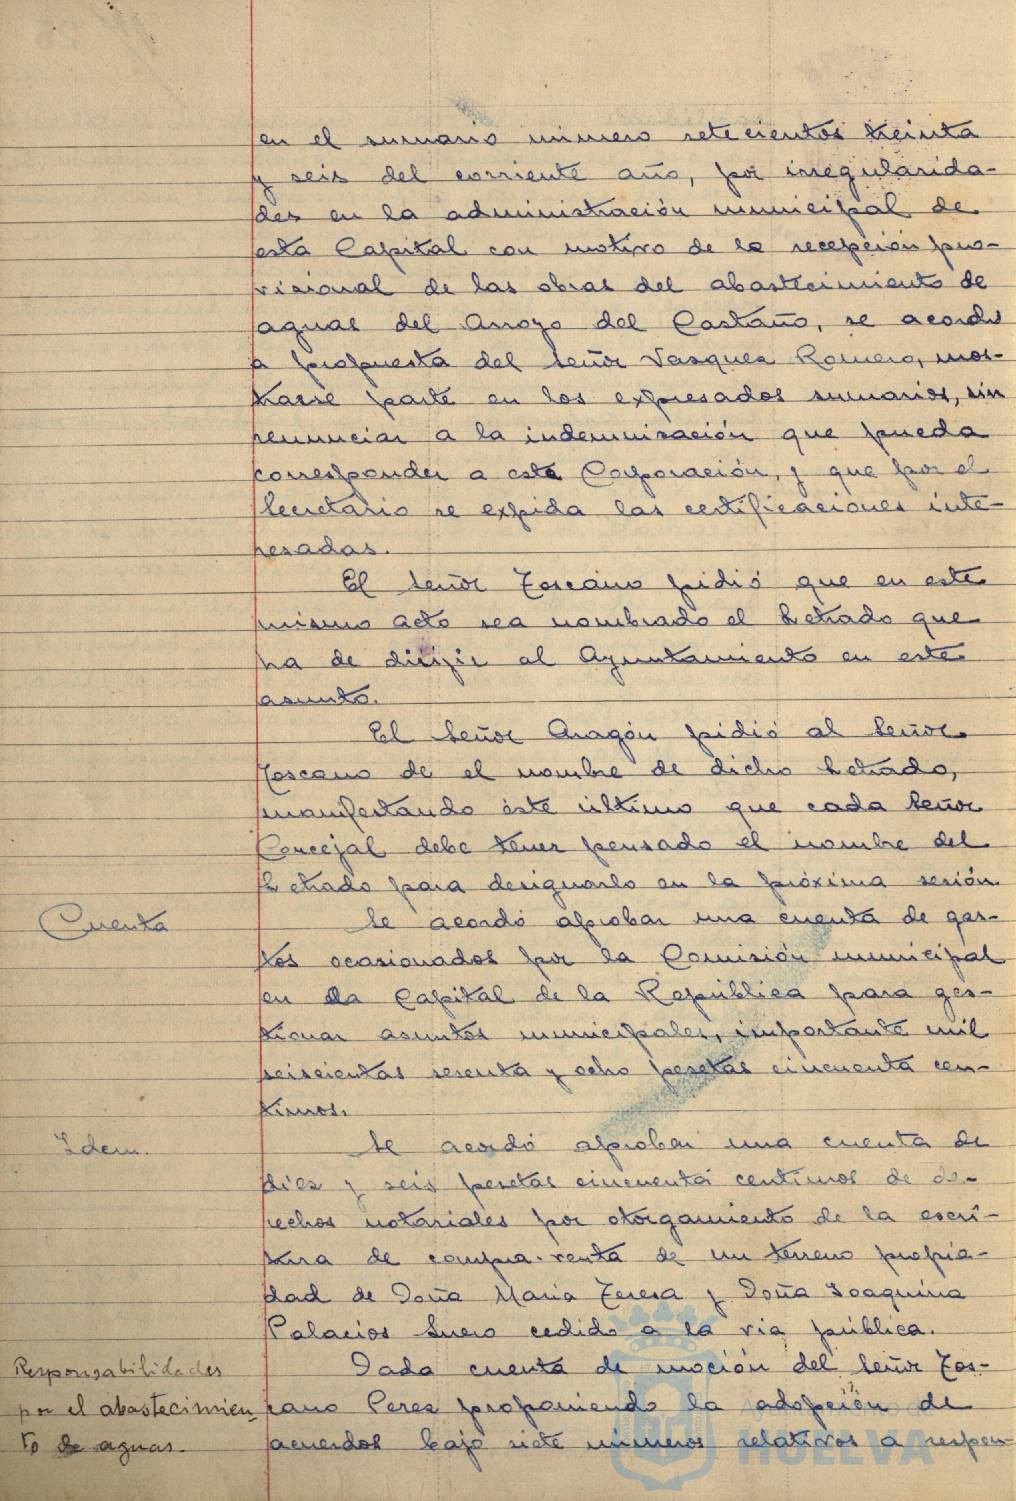 en el sumario número setecientos treinta
y seis del corriente año, por irregularida-
des en la administración municipal de
esta Capital con motivo de la recepción pro-
visional de las obras del abastecimiento de
aguas del Arroyo del Castaño, se acordó
a propuesta del Señor Vasquez Romero, mos-
trarse parte en los expresados sumarios, sin
renunciar a la indemnisación que pueda
corresponder a esta Corporación, y que por el
Secretario se expida las certificaciones inte-
resadas.
El Señor Toscano pidió que en este
mismo acto sea nombrado el Letrado que
ha de dirijir al Ayuntamiento en este
asunto.
El Señor Aragón pidió al Señor
Toscano de el nombre de dicho Letrado,
manifestando éste último que cada Señor
Concejal debe tener pensado el nombre del
Letrado para designarlo en la próxima sesión.
Cuenta
Se acordó aprobar una cuenta de gas-
tos ocasionados por la Comisión municipal
en la Capital de la República para ges-
tionar asuntos municipales, importante mil
seiscientas sesenta y ocho pesetas cincuenta cen-
timos.
Idem.
Se acordó aprobar una cuenta de
diez y seis pesetas cincuenta centimos de de-
rechos notariales por otorgamiento de la escri-
tura de compra-venta de un terreno propie-
dad de Doña Maria Teresa y Doña Joaquina
Palacios Suero cedido a la via pública.
Responsabilidades
por el abastecimien
to de aguas.
Dada cuenta de moción del Señor Tos-
cano Perez proponiendo la adopción de
acuerdos bajo siete números relativos a respon-
HUELVA